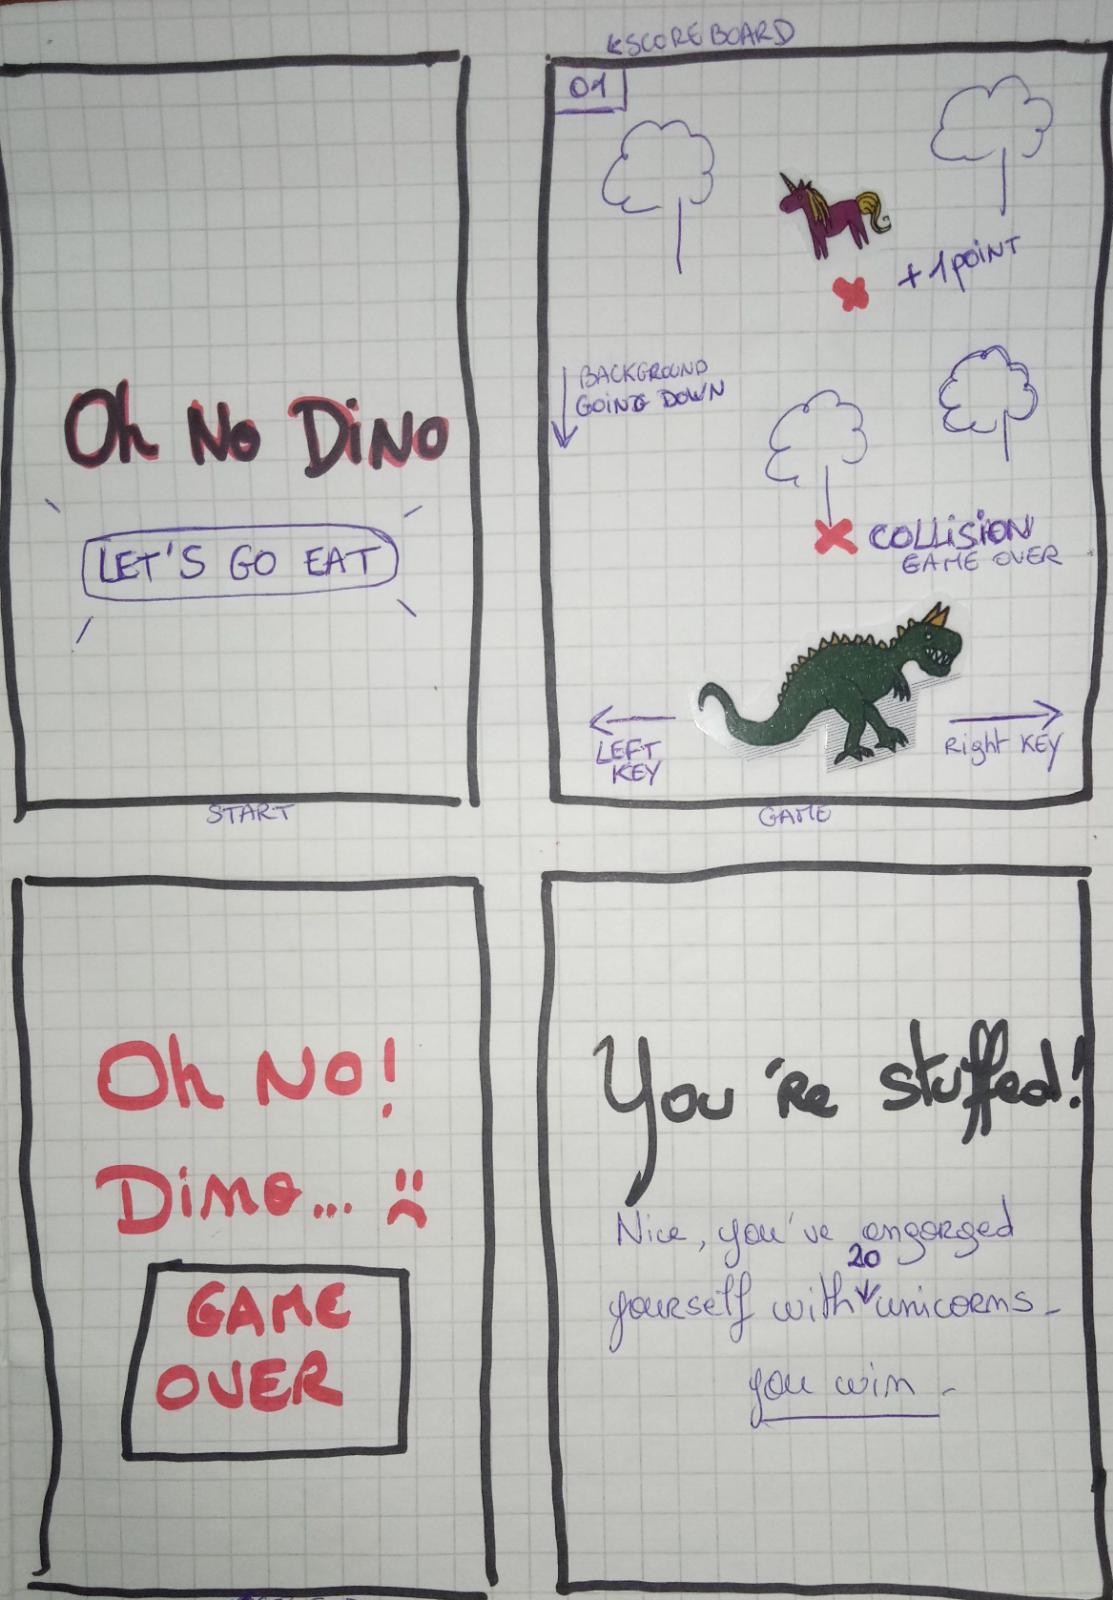 Oh No Dino
LET'S GO EAT
START
SCOREBOARD
01
+ 1 POINT
BACKGROUND
GOING DOWN
COLLISION
GAME OVER
LEFT
KEY
Right KEY
GAME
Oh No!
Dino... :(
GAME
OVER
You're stuffed!
Nice, you've engorged
20
yourself with unicorns-
you win-